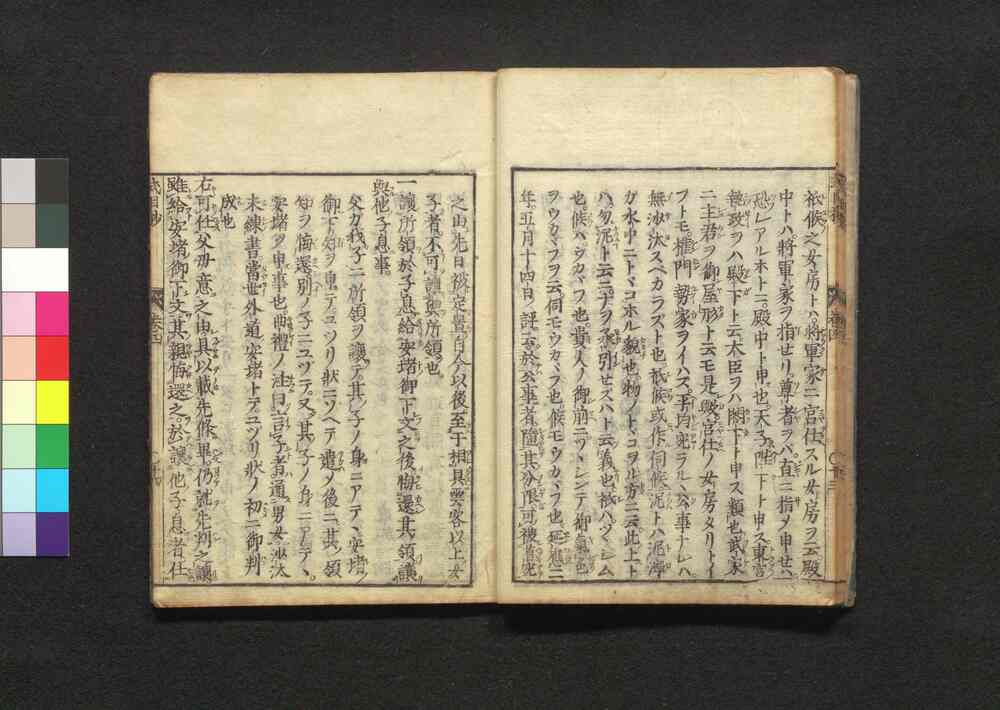 祇候之女房トハ將軍家ニ宮仕スル女房ヲ云殿
中トハ將軍家ヲ指セリ尊者ヲハ直ニ指メ申セハ
恐レアルホトニ殿中ト申也天子陛下ト申ス東宮
攝政ヲハ殿下ト云大臣ヲハ閤下ト申ス類也武家
ニ主君ヲ御屋形ト云モ是殿宮仕ノ女房タリトイ
フトモ權門勢家ヲイハス平均タラル公事ナレハ
無沙汰スベカラズト也祇候或作伺候泥トハ泥滯
カ水中ニトヾコホル貌也物ノトヾコヲル方ニ云此上ト
ハ勿泥ト云ニナヲ引セスハト云義也祇ハツヽシム
也候ハウカヾフ也貴人ノ御前ニツヽシンデ御氣色
ヲウカヾフヲ云伺モウカヾフ也候モウカヾフ也延應二
年五月十四日ノ評云於公事者隨其分限可被
之由先日被定置自今以後至于相具雲客以上女
子者不可讓與所領也
一讓所領於子息給安堵御下文之後悔還其領讓
與他子息事
父カ我子ニ所領ヲ讓テ其子ノ身ニアテヽ安堵ノ
御下知ヲ申テユツリ狀ニソヘテ遣ノ後ニ其ノ領
知ヲ悔還別ノ子ニユヅテ又其子ノ身ニアテヽ
安堵ヲ申事也曲禮ノ注曰言子者通男女沙汰
未練書當世外題安堵トテユヅリ狀ノ初ニ御判
成也
右可任父母意之由具以載先條畢仍就先判之讓
雖給安堵御下文其親悔還之於讓他子息者任